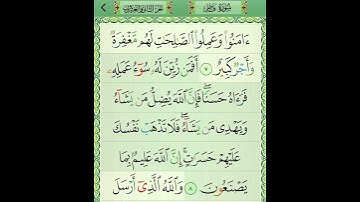 سُورَةُ فَاطِرٍ الجزء الثاني والعشرون
ءَامَنُوا۟ وَعَمِلُوا۟ ٱلصَّـٰلِحَـٰتِ لَهُم مَّغْفِرَةٌ
وَأَجْرٌ كَبِيرٌ ٧ أَفَمَن زُيِّنَ لَهُۥ سُوٓءُ عَمَلِهِۦ
فَرَءَاهُ حَسَنًا ۖ فَإِنَّ ٱللَّهَ يُضِلُّ مَن يَشَآءُ
وَيَهْدِى مَن يَشَآءُ ۖ فَلَا تَذْهَبْ نَفْسُكَ
عَلَيْهِمْ حَسَرَٰتٍ ۚ إِنَّ ٱللَّهَ عَلِيمٌۢ بِمَا
يَصْنَعُونَ ٨ وَٱللَّهُ ٱلَّذِىٓ أَرْسَلَ